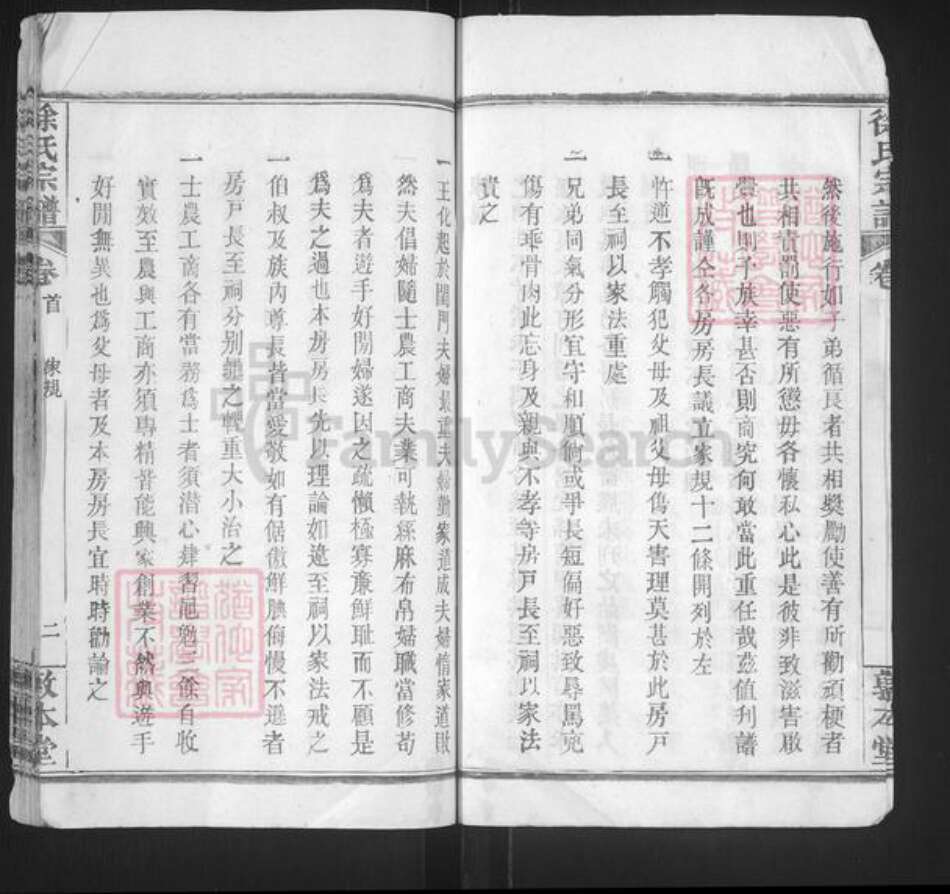 然後施行如子弟循良者共相獎勵使善有所勸頑梗者
共相責罰使惡有所懲毋各懷私心此是彼非致滋害敗
也則予族幸甚否則商究何敢當此重任哉茲值刋譜
旣成謹仝各房房長議立家規十二條開列於左
一忤逆不孝觸犯父母及祖父母傷天害理莫甚於此房戸
長至祠以家法重處
一兄弟同氣分形宜守和順倘或爭長短偏好惡致辱駡兇
傷有乖骨肉此忘身及親與不孝等房戸長至祠以家法
責之
一王化起於閨門夫婦最重夫婦勤家道成夫婦惰家道敗
然夫倡婦隨士農工商夫業可執絲麻布帛婦職當修苟
爲夫者遊手好閒婦遂因之疏懶極寡亷鮮耻而不顧是
爲夫之過也本房房長先以理論如違至祠以家法戒之
一伯叔及族內尊長皆當愛敬如有倨傲鮮腆侮慢不遜者
房戸長至祠分别雖之輕重大小治之
一士農工商各有當務爲士者須潛心肄習黽勉三餘自收
實效至農與工商亦須專精皆能興家創業不然與遊手
好閒無異也爲父母者及本房房長宜時時勸諭之
徐氏宗譜
卷首
家規
二
敦本堂
徐氏宗譜
卷
本堂
FamilySearch